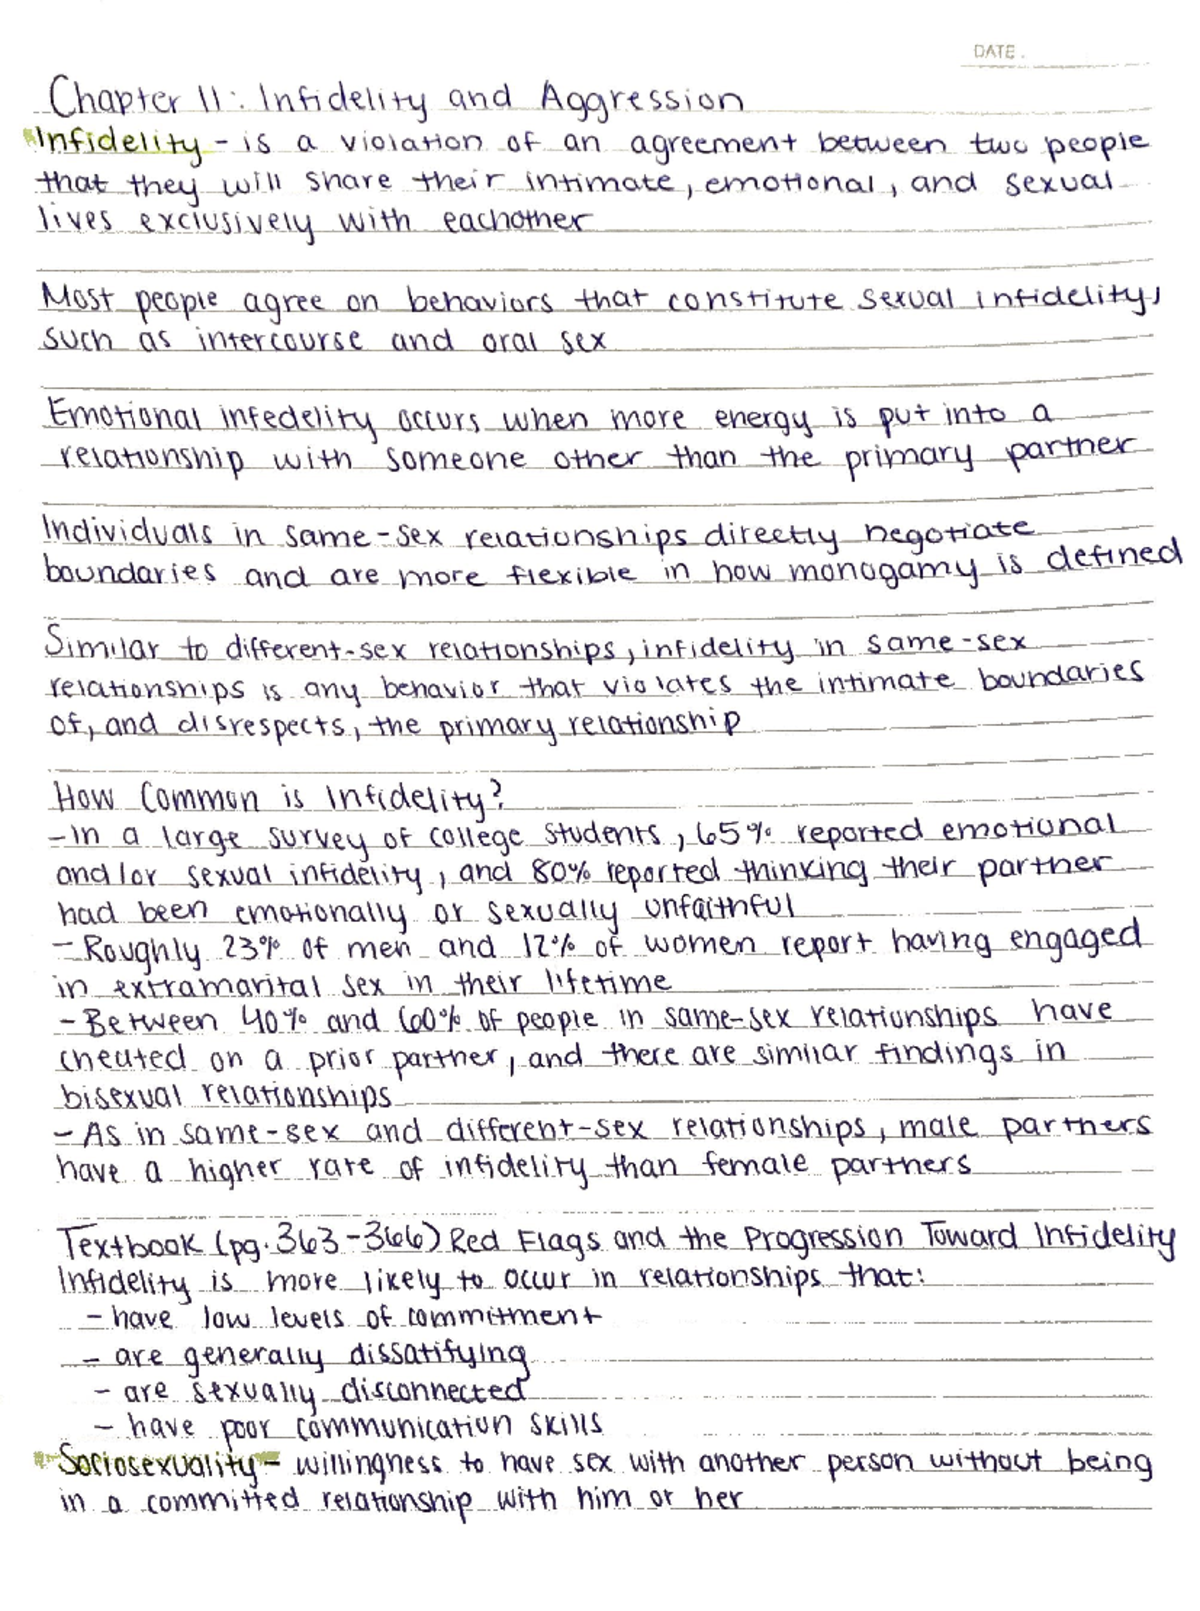 DATE.
Chapter 11: Infidelity and Aggression
Infidelity - is a violation of an agreement between two people
that they will share their intimate, emotional, and sexual
lives exclusively with eachother
Most people agree on behaviors that constitute sexual infidelity,
such as intercourse and oral sex
Emotional infedelity occurs when more energy is put into a
relationship with someone other than the primary partner
Individuals in same-sex relationships directly negotiate
boundaries and are more flexible in how monogamy is defined
Similar to different-sex relationships, infidelity in same-sex
relationships is any behavior that violates the intimate boundaries
of, and disrespects, the primary relationship
How Common is Infidelity?
-In a large survey of college students, 65% reported emotional
and/or sexual infidelity, and 80% reported thinking their partner
had been emotionally or sexually unfaithful
-Roughly 23% of men and 12% of women report having engaged
in extramarital sex in their lifetime
-Between 40% and 60% of people in same-sex relationships have
cheated on a prior partner, and there are similar findings in
bisexual relationships
-As in same-sex and different-sex relationships, male partners
have a higher rate of infidelity than female partners
Textbook (pg. 363-366) Red Flags and the Progression Toward Infidelity
Infidelity is more likely to occur in relationships that:
- have low levels of commitment
- are generally dissatifying
- are sexually disconnected
- have poor communication skills
Sociosexuality - willingness to have sex with another person without being
in a committed relationship with him or her